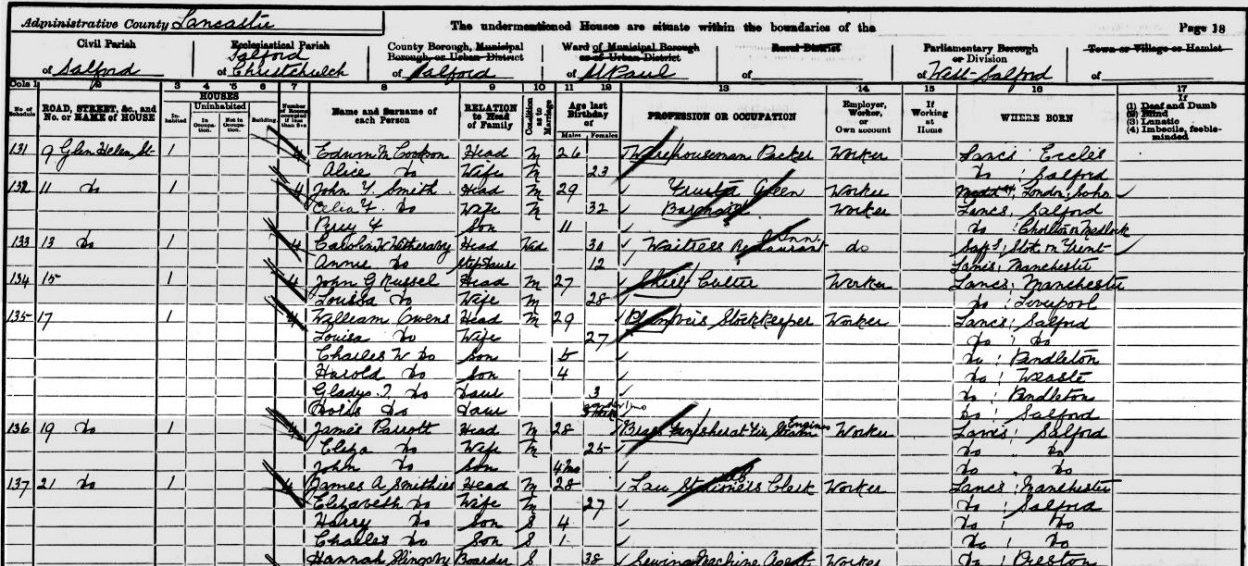 Administrative County Lancaster The undermentioned Houses are situate within the boundaries of the Page 18
Civil Parish Ecclesiastical Parish County Borough, Municipal Borough or Urban District Ward of Municipal Borough or of Urban District Rural District Parliamentary Borough or Division Town or Village or Hamlet
of Salford of Salford Christchurch of Salford of St Paul of of West Salford of
Cols 1 2 3 4 5 6 7 8 9 10 11 12 13 14 15 16 17
No. of Schedule ROAD, STREET, &c., and No. or NAME of HOUSE HOUSES Inhabited Uninhabited In Occupation. Not in Occupation. Building. Number of Rooms occupied if less than five Name and Surname of each Person RELATION to Head of Family Condition as to Marriage Age last Birthday of Males Females PROFESSION OR OCCUPATION Employer, Worker, or Own account If Working at Home WHERE BORN If (1) Deaf and Dumb (2) Blind (3) Lunatic (4) Imbecile, feeble-minded
131 9 Glen Helen St 1 4 Edwin M Cookson Head M 26 Warehouseman Packer Worker Lancs Eccles
Alice Do Wife M 23 Do Salford
132 11 Do 1 4 John Y Smith Head M 29 Worker London, Soho
Celia Y. Do Wife M 32 Barmaid Worker Lancs, Salford
Percy Y Son 11 Do Chorlton Medlock
133 13 Do 1 4 Wid 30 Waitress Restaurant do Stoke on Trent
Annie Do Step Daur 12 Lancs, Manchester
134 15 1 4 John G Russel Head M 27 Cutter Worker Lancs, Manchester
Louisa Do Wife M 28 Do Liverpool
135 17 1 4 William Owens Head M 29 Stockkeeper Worker Lancs, Salford
Louisa Do Wife 27 Do Do
Charles W Do Son 5 Do Pendleton
Harold Do Son 4 Do Weaste
Gladys Do Daur 3 Do Pendleton
Doris Do Daur Do Salford
136 19 Do 1 4 James Parrott Head M 28 Brass Finisher Engines Worker Lancs, Salford
Eliza Do Wife M 25 Do Do
John Do Son 4 mo Do Do
137 21 Do 1 4 James A Smithies Head M 28 Law Stationers Clerk Worker Lancs, Manchester
Elizabeth Do Wife M 27 Do Salford
Harry Do Son S 4 Do Do
Charles Do Son S 1 Do Do
Hannah Slingsby Boarder S 38 Sewing Machine Agent Worker Do Preston